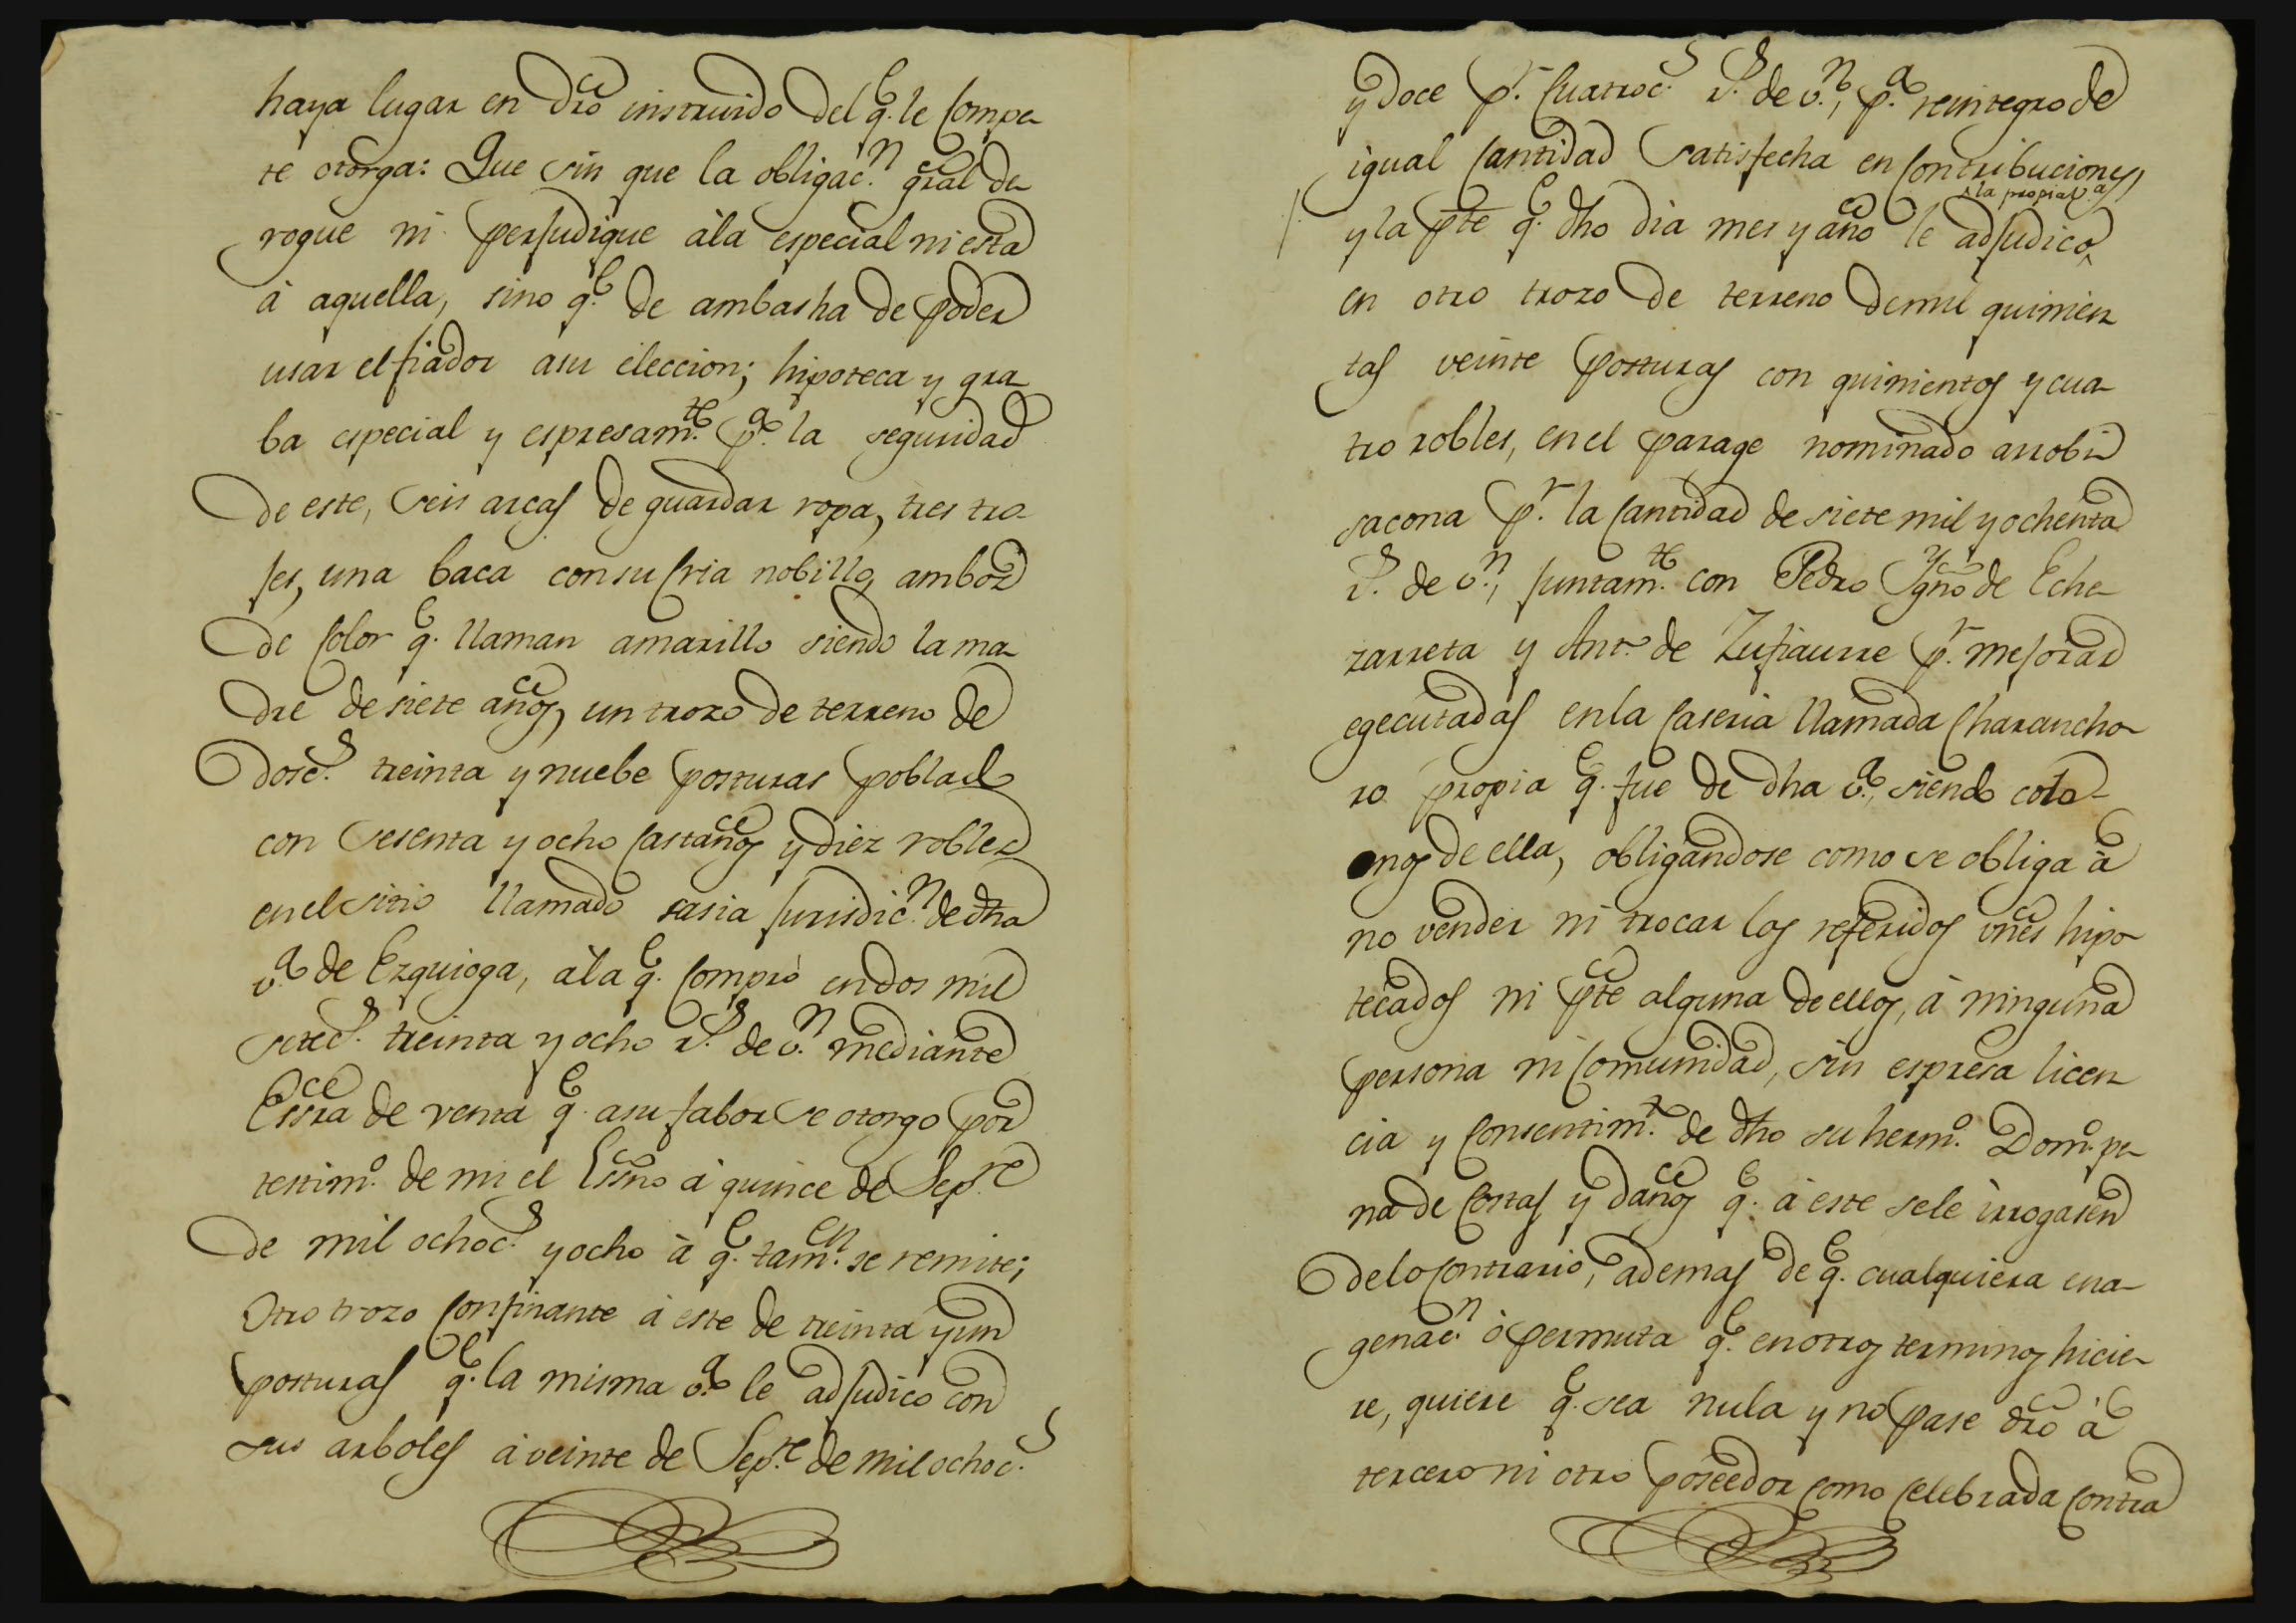 haya lugar en dro instruido del q.e le Compe-
te otorga: Que sin que la obligac.n gral de-
rogue ni perjudique àla especial ni esta
à aquella, sino q.e de ambas ha de poder
usar el fiador asu eleccion; hipoteca y gra-
ba especial y espresam.te p.a la seguridad
de este, seis arcas de guardar ropa, tres tro-
jes, una baca con su Cria nobillo, ambos
de Color q.e llaman amarillo siendo la ma-
dre de siete años, un trozo de terreno de
dosc.s treinta y nuebe posturas poblado
con sesenta y ocho Castaños y diez robles
en el sitio llamado sasia Jurisdic.n de dha
v.a de Ezquioga, àla q.e Compró en dos mil
setec.s treinta y ocho r.s de v.n mediante
Essra de venta q.e asu fabor se otorgo por
testim.o de mi el Essno à quince de Sep.re
de mil ochoc.s y ocho à q.e tam.en se remite;
Otro trozo Confinante à este de treinta y un
posturas q.e la misma v.a le adjudico con
sus arboles à veinte de Sep.re de mil ochoc.s
y doce p.r Cuatroc.s r.s de v.n, p.a reintegro de
igual Cantidad satisfecha en Contribuciones,
la propia v.a
y la pte q.e dho dia mes y año le adjudico
en otro trozo de terreno de mil quinien-
tas veinte posturas con quinientos y cua-
tro robles, en el parage nominado arrobi
sacona p.r la Cantidad de siete mil y ochenta
r.s de v.n, juntam.te con Pedro Ygno de Eche-
zarreta y Ant.o de Zufiaurre p.r mejoras
egecutadas en la Caseria llamada Charancho-
ro propia q.e fue de dha v.a, siendo colo-
nos de ella, obligandose como se obliga à
no vender ni trocar los referidos vnes hipo-
tecados ni pte alguna de ellos, à ninguna
persona ni Comunidad, sin espresa licen-
cia y Consentim.to de dho su herm.o Dom.o pe-
na de Costas y daños q.e à este sele irrogasen
delo Contrario, ademas de q.e cualquiera ena-
genac.n ò permuta q.e en otros terminos hicie-
re, quiere q.e sea nula y no pase dro à
tercero ni otro poseedor Como Celebrada Contra